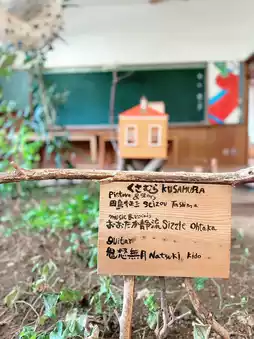 くさむら KUSAMURA
Picture & Story
田島征三 Seizou Tashima
music & vocals
おおたか静流 Sizzle Ohtaka
guitar
Natsuki Kido